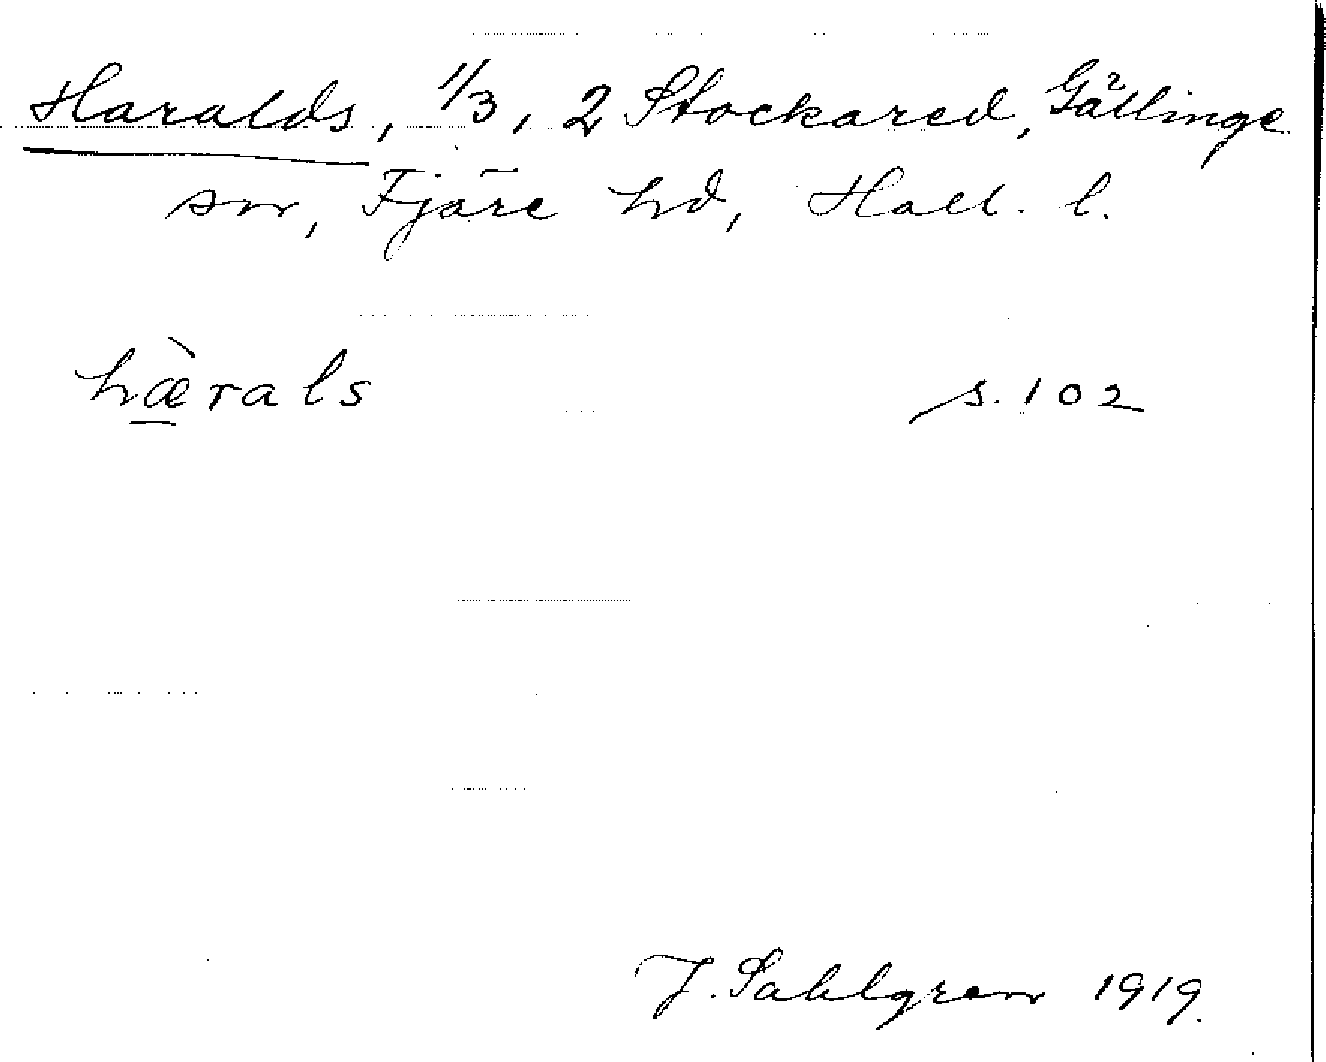 Haralds, 1/3, 2 Stockared, Gällinge
sn, Fjäre hd, Hall. l.
hæ̀rals s. 102
J. Sahlgren 1919.